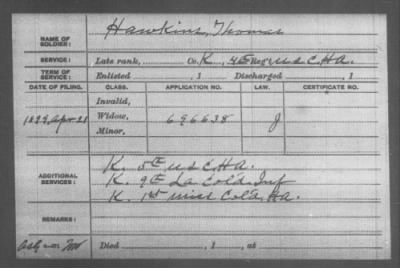 NAME OF SOLDIER: Hawkins, Thomas
SERVICE: Late rank, Co. K, 4th Reg't U S C, H A.
TERM OF SERVICE: Enlisted , 1 Discharged , 1
DATE OF FILING. CLASS. APPLICATION NO. LAW. CERTIFICATE NO.
Invalid,
1899, Apr 21 Widow, 696638 J
Minor,
ADDITIONAL SERVICES: K. 5th U S C, H A.
K. 9th La Cold. Inf
K. 1st Miss Cold. H A.
REMARKS:
Died , 1 , at